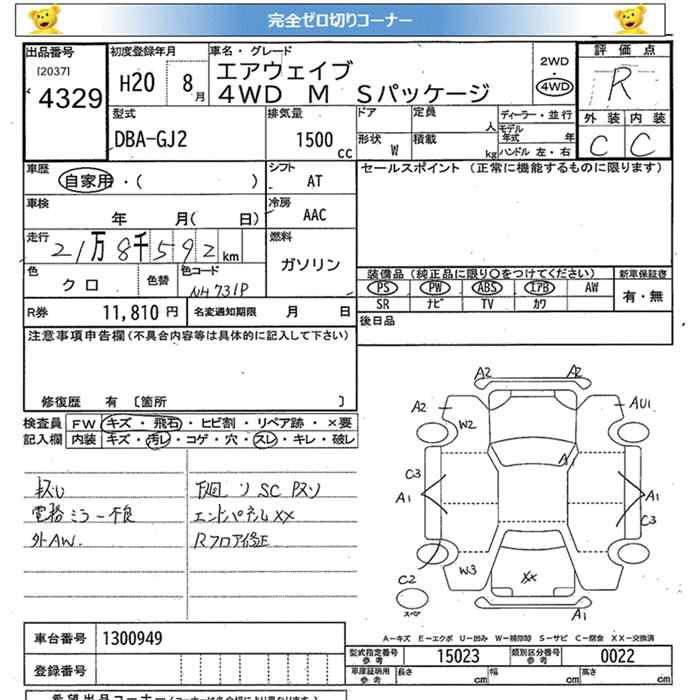 完全ゼロ切りコーナー
出品番号 初度登録年月 車名・グレード 2WD 評価点
[2037] 4329 H20 8月 エアウェイブ ・ R
4WD M Sパッケージ 4WD
型式 排気量 ドア 定員 人 ディーラー・並行 外装 内装
DBA-GJ2 1500 cc 形状 W 積載 kg モデル年式 年 ハンドル 左・右 C C
車歴 シフト セールスポイント (正常に機能するものに限ります)
自家用・( ) AT
車検 冷房
年 月( 日) AAC
走行 燃料
21万8千592km ガソリン
色 色替 色コード 装備品 (純正品に限り○をつけてください) 新車保証書
クロ NH731P PS PW ABS エアB AW 有・無
SR ナビ TV カワ
R券 11,810 円 名変通知期限 月 日 後日品
注意事項申告欄 (不具合内容等は具体的に記入して下さい)
修復歴 有 [箇所 ]
検査員 FW キズ・飛石・ヒビ割・リペア跡・×要
記入欄 内装 キズ・汚レ・コゲ・穴・スレ・キレ・破レ
下回 リ SC
電格ミラー不良 エンドパネルXX
外AW. Rフロア修正
A2 A2
A2 W2 AU1
A
C3 A1 A1 C3
W3 XX
C2
スペア A1
A-キズ E-エクボ U-凹み W-補修跡 S-サビ C-腐食 XX-交換済
車台番号 1300949
型式指定番号 参考 15023 類別区分番号 参考 0022
登録番号
車庫証明用 参考 長さ 幅 高さ
希望出品コーナー